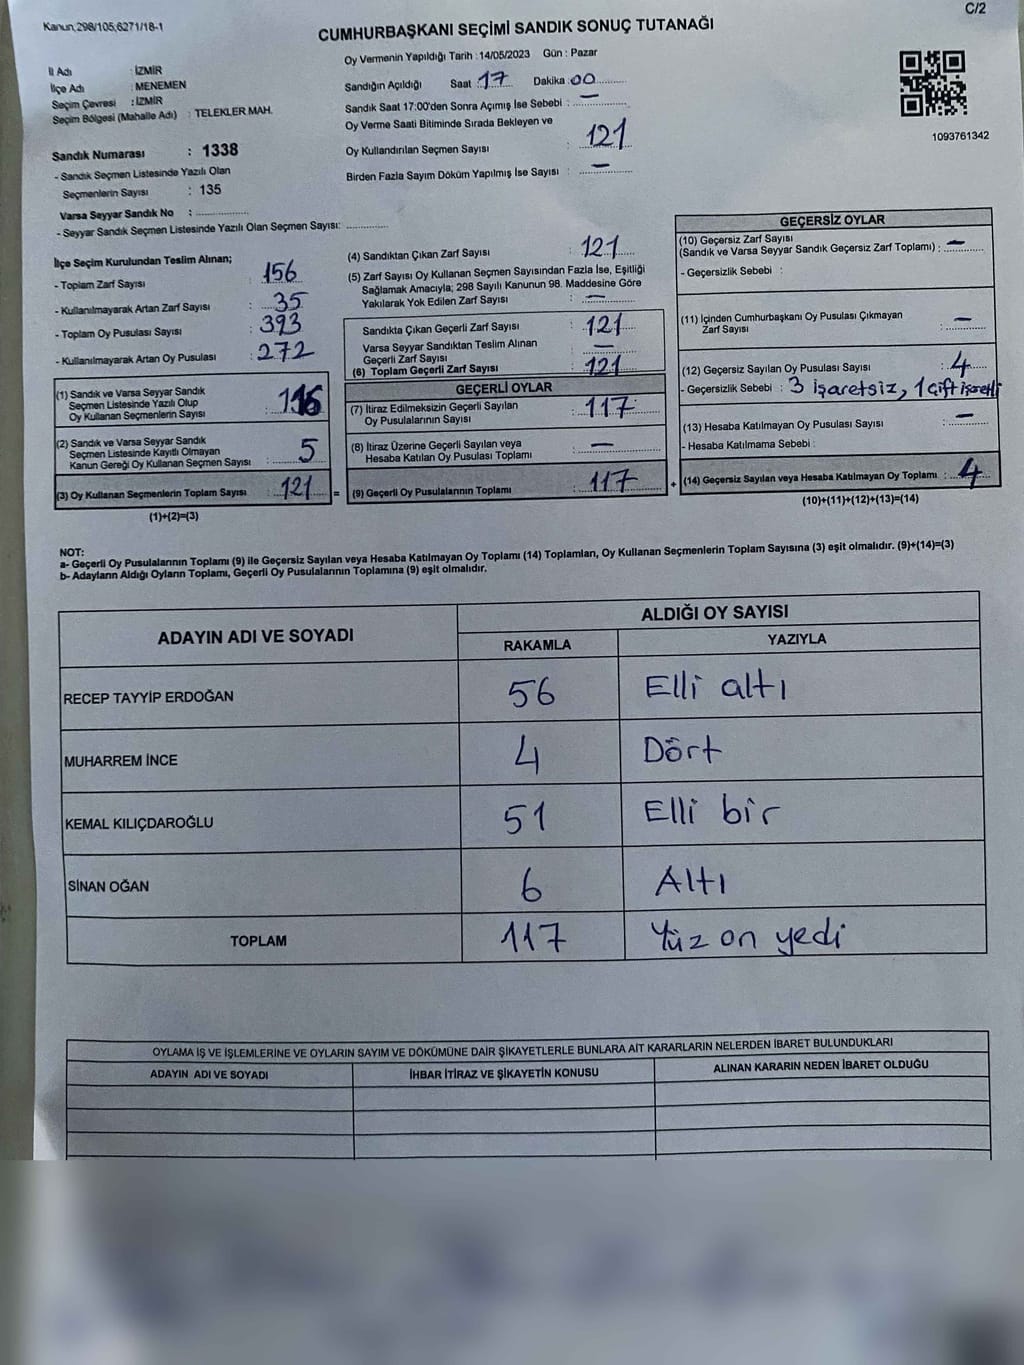 Kanun,298/105,6271/18-1
C/2
CUMHURBAŞKANI SEÇİMİ SANDIK SONUÇ TUTANAĞI
İl Adı : İZMİR
İlçe Adı : MENEMEN
Seçim Çevresi : İZMİR
Seçim Bölgesi (Mahalle Adı) : TELEKLER MAH.
Sandık Numarası : 1338
- Sandık Seçmen Listesinde Yazılı Olan
Seçmenlerin Sayısı : 135
Varsa Seyyar Sandık No : ................
- Seyyar Sandık Seçmen Listesinde Yazılı Olan Seçmen Sayısı: .............
Oy Vermenin Yapıldığı Tarih : 14/05/2023 Gün : Pazar
Sandığın Açıldığı Saat : 17 Dakika : 00
Sandık Saat 17:00'den Sonra Açımış İse Sebebi : —
Oy Verme Saati Bitiminde Sırada Bekleyen ve
Oy Kullandırılan Seçmen Sayısı : 121
Birden Fazla Sayım Döküm Yapılmış İse Sayısı : —
1093761342
İlçe Seçim Kurulundan Teslim Alınan;
- Toplam Zarf Sayısı : 156
- Kullanılmayarak Artan Zarf Sayısı : 35
- Toplam Oy Pusulası Sayısı : 393
- Kullanılmayarak Artan Oy Pusulası : 272
(1) Sandık ve Varsa Seyyar Sandık
Seçmen Listesinde Yazılı Olup
Oy Kullanan Seçmenlerin Sayısı : 116
(2) Sandık ve Varsa Seyyar Sandık
Seçmen Listesinde Kayıtlı Olmayan
Kanun Gereği Oy Kullanan Seçmen Sayısı : 5
(3) Oy Kullanan Seçmenlerin Toplam Sayısı : 121 =
(1)+(2)=(3)
(4) Sandıktan Çıkan Zarf Sayısı : 121
(5) Zarf Sayısı Oy Kullanan Seçmen Sayısından Fazla İse, Eşitliği
Sağlamak Amacıyla; 298 Sayılı Kanunun 98. Maddesine Göre
Yakılarak Yok Edilen Zarf Sayısı : —
Sandıkta Çıkan Geçerli Zarf Sayısı : 121
Varsa Seyyar Sandıktan Teslim Alınan
Geçerli Zarf Sayısı : —
(6) Toplam Geçerli Zarf Sayısı : 121
GEÇERLİ OYLAR
(7) İtiraz Edilmeksizin Geçerli Sayılan
Oy Pusulalarının Sayısı : 117
(8) İtiraz Üzerine Geçerli Sayılan veya
Hesaba Katılan Oy Pusulası Toplamı : —
(9) Geçerli Oy Pusulalarının Toplamı : 117 +
GEÇERSİZ OYLAR
(10) Geçersiz Zarf Sayısı
(Sandık ve Varsa Seyyar Sandık Geçersiz Zarf Toplamı) : —
- Geçersizlik Sebebi :
(11) İçinden Cumhurbaşkanı Oy Pusulası Çıkmayan
Zarf Sayısı : —
(12) Geçersiz Sayılan Oy Pusulası Sayısı : 4
- Geçersizlik Sebebi : 3 işaretsiz, 1 çift işaretli
(13) Hesaba Katılmayan Oy Pusulası Sayısı : —
- Hesaba Katılmama Sebebi :
(14) Geçersiz Sayılan veya Hesaba Katılmayan Oy Toplamı : 4
(10)+(11)+(12)+(13)=(14)
NOT:
a- Geçerli Oy Pusulalarının Toplamı (9) ile Geçersiz Sayılan veya Hesaba Katılmayan Oy Toplamı (14) Toplamları, Oy Kullanan Seçmenlerin Toplam Sayısına (3) eşit olmalıdır. (9)+(14)=(3)
b- Adayların Aldığı Oyların Toplamı, Geçerli Oy Pusulalarının Toplamına (9) eşit olmalıdır.
ADAYIN ADI VE SOYADI ALDIĞI OY SAYISI
RAKAMLA YAZIYLA
RECEP TAYYİP ERDOĞAN 56 Elli altı
MUHARREM İNCE 4 Dört
KEMAL KILIÇDAROĞLU 51 Elli bir
SİNAN OĞAN 6 Altı
TOPLAM 117 Yüz on yedi
OYLAMA İŞ VE İŞLEMLERİNE VE OYLARIN SAYIM VE DÖKÜMÜNE DAİR ŞİKAYETLERLE BUNLARA AİT KARARLARIN NELERDEN İBARET BULUNDUKLARI
ADAYIN ADI VE SOYADI İHBAR İTİRAZ VE ŞİKAYETİN KONUSU ALINAN KARARIN NEDEN İBARET OLDUĞU